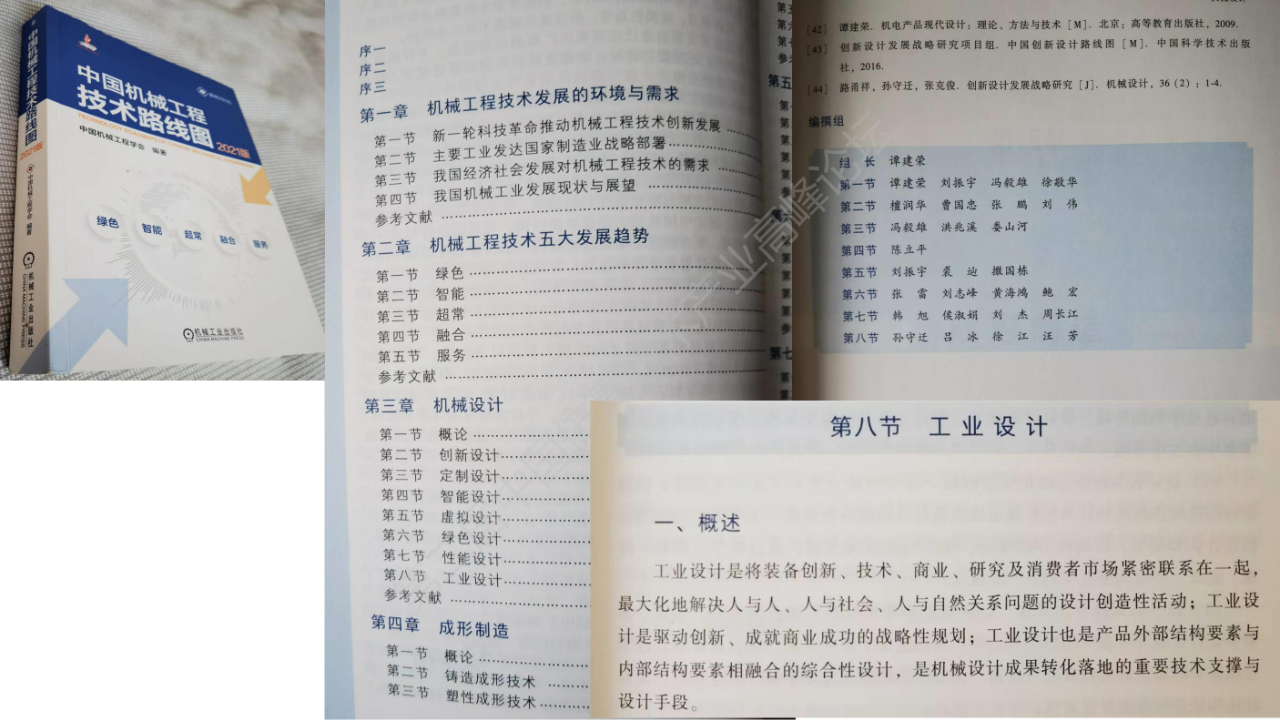 中国机械工程
技术路线图
2021版
中国机械工程学会 编著
绿色
智能
超常
融合
服务
机械工业出版社
CHINA MACHINE PRESS
中国机械工程技术路线图
2021版
中国机械工程学会 编著
机械工业出版社
CHINA MACHINE PRESS
序一
序二
序三
第一章 机械工程技术发展的环境与需求
第一节 新一轮科技革命推动机械工程技术创新发展
第二节 主要工业发达国家制造业战略部署
第三节 我国经济社会发展对机械工程技术的需求
第四节 我国机械工业发展现状与展望
参考文献
第二章 机械工程技术五大发展趋势
第一节 绿色
第二节 智能
第三节 超常
第四节 融合
第五节 服务
参考文献
第三章 机械设计
第一节 概论
第二节 创新设计
第三节 定制设计
第四节 智能设计
第五节 虚拟设计
第六节 绿色设计
第七节 性能设计
第八节 工业设计
参考文献
第四章 成形制造
第一节 概论
第二节 铸造成形技术
第三节 塑性成形技术
[42] 谭建荣. 机电产品现代设计：理论、方法与技术 [M]. 北京：高等教育出版社，2009.
[43] 创新设计发展战略研究项目组. 中国创新设计路线图 [M]. 中国科学技术出版
社，2016.
[44] 路甬祥，孙守迁，张克俊. 创新设计发展战略研究 [J]. 机械设计，36（2）：1-4.
编撰组
组 长 谭建荣
第一节 谭建荣 刘振宇 冯毅雄 徐敬华
第二节 檀润华 曹国忠 张 鹏 刘 伟
第三节 冯毅雄 洪兆溪 娄山河
第四节 陈立平
第五节 刘振宇 裘 辿 撒国栋
第六节 张 雷 刘志峰 黄海鸿 鲍 宏
第七节 韩 旭 侯淑娟 刘 杰 周长江
第八节 孙守迁 吕 冰 徐 江 汪 芳
第八节 工业设计
一、概述
工业设计是将装备创新、技术、商业、研究及消费者市场紧密联系在一起，
最大化地解决人与人、人与社会、人与自然关系问题的设计创造性活动；工业设
计是驱动创新、成就商业成功的战略性规划；工业设计也是产品外部结构要素与
内部结构要素相融合的综合性设计，是机械设计成果转化落地的重要技术支撑与
设计手段。